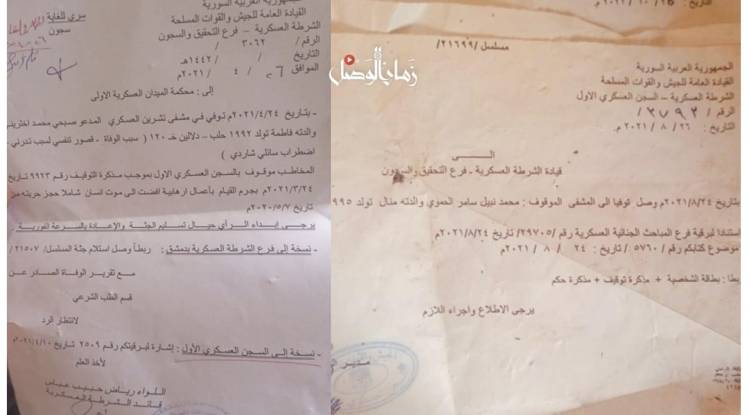 الجمهورية العربية السورية
القيادة العامة للجيش والقوات المسلحة
الشرطة العسكرية – فرع التحقيق والسجون
الرقم / ٣٠٦٢
التاريخ / / ١٤٤٢هـ
الموافق / ٤ / ٢٠٢١م
سري للغاية
سجون
إلى : محكمة الميدان العسكرية الاولى
- بتاريخ ٢٠٢١/٤/٢٤م توفي في مشفى تشرين العسكري المدعو صبحي محمد
والدته فاطمة تولد ١٩٩٢ حلب – دلابين خـ ١٢٠ ( سبب الوفاة - قصور تنفسي لسبب تدرني -
اضطراب سائلي شاردي )
المخاطب موقوف بالسجن العسكري الاول بموجب مذكرة التوقيف رقم ٩٩٢٣ تاريخ
٢٠٢١/٣/٢٤م بجرم القيام بأعمال ارهابية افضت الى موت انسان شاملا حجز حريته من
تاريخ ٢٠٢٠/٥/٧م
يرجى إبداء الرأي حيال تسليم الجثة والإعادة بالسرعة الفورية
- نسخة إلى فرع الشرطة العسكرية بدمشق : ربطاً وصل استلام جثة المسلسل/ ٢١٥٠٧/
مع تقرير الوفاة الصادر عن
قسم الطب الشرعي
لانتظار الرد
- نسخة إلى السجن العسكري الأول : إشارة لبرقيتكم رقم ٢٥٠٩ تاريخ ٢٠٢١/٤/١٠م
لأخذ العلم
اللواء رياض حبيب عباس
قائد الشرطة العسكرية
زمان الوصل
٢٠٢١ م
مسلسل /٢١٦٩٩/
الجمهورية العربية السورية
القيادة العامة للجيش والقوات المسلحة
الشرطة العسكرية – السجن العسكري الأول
الرقم /
التاريخ / ٢٦ / ٨ / ٢٠٢١ م
الى
قيادة الشرطة العسكرية - فرع التحقيق والسجون
بتاريخ ٢٠٢١/٨/٢٤م وصل توفيا الى المشفى الموقوف : محمد نبيل سامر الحموي والدته منال تولد
استنادا لبرقية فرع المباحث الجنائية العسكرية رقم /٢٩٧٠٥/ تاريخ ٢٠٢١/٨/٢٤م
موضوع كتابكم رقم / ٥٧٦٠/ تاريخ ٢٤ / ٨ / ٢٠٢١م
بطا : بطاقة الشخصية + مذكرة توقيف + مذكرة حكم
يرجى الاطلاع واجراء اللازم
مدير